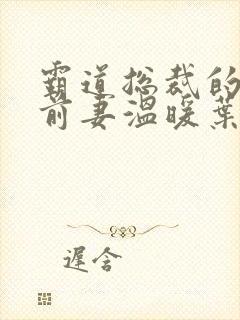 霸道总裁的
前妻温暖葉
遲含